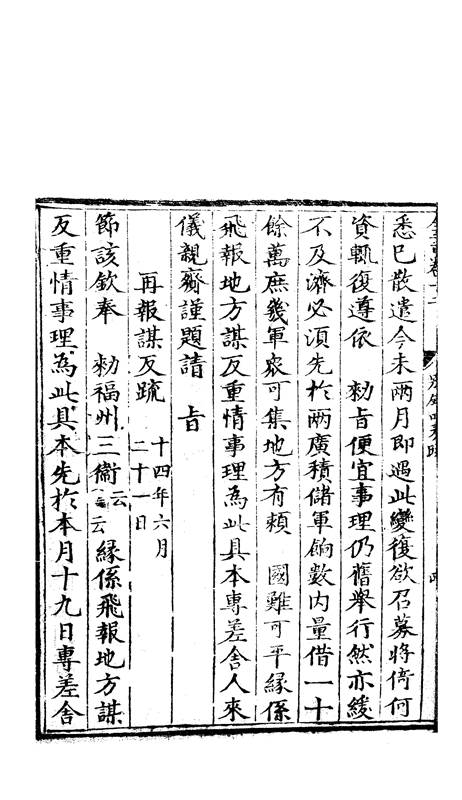 悉已散遣今未兩月即遇此變復欲召募將倚何
資輒復遵依　勑旨便宜事理仍舊舉行然亦緩
不及濟必須先於兩廣積儲軍餉數內量借一十
餘萬庶幾軍衆可集地方有賴　國難可平緣係
飛報地方謀反重情事理為此具本專差舍人來
儀親齎謹題請　旨
再報謀反疏 十四年六月
二十一日
節該欽奉　勑福州三衞云
云緣係飛報地方謀
反重情事理為此具本先於本月十九日專差舍